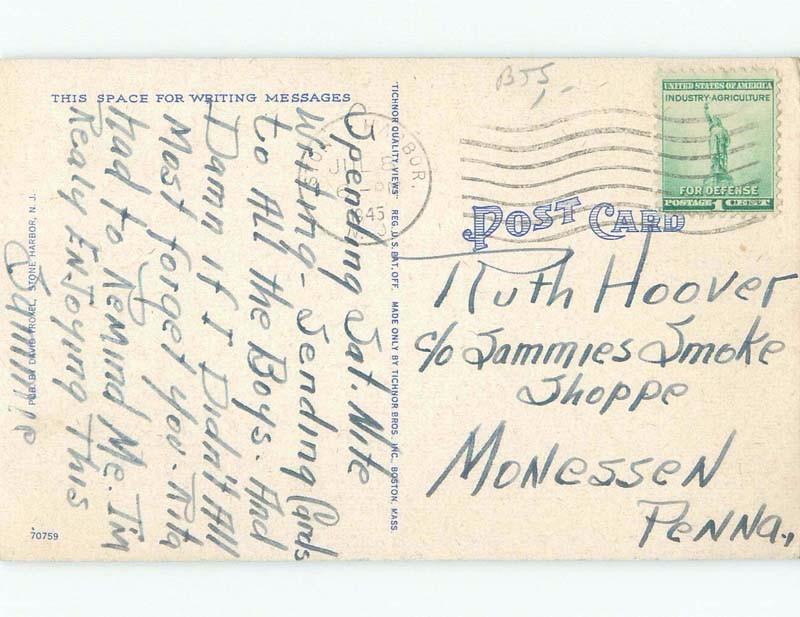 THIS SPACE FOR WRITING MESSAGES
Spending Sat. Nite
Writing - Sending Cards
to All the Boys. And
Damn if I Didn't All
Most forget you. Rita
had to Remind Me. I'm
Realy EnJoying This
Sammie
PUB. BY DAVID TROXEL, STONE HARBOR, N. J.
70759
"TICHNOR QUALITY VIEWS" REG. U. S. PAT. OFF. MADE ONLY BY TICHNOR BROS. INC. BOSTON, MASS.
B55
HARBOR.
JUL 8
1945
N. J.
UNITED STATES OF AMERICA
INDUSTRY-AGRICULTURE
FOR DEFENSE
POSTAGE 1 CENT
POST CARD
Ruth Hoover
c/o Sammies Smoke
Shoppe
Monessen
Penna.,